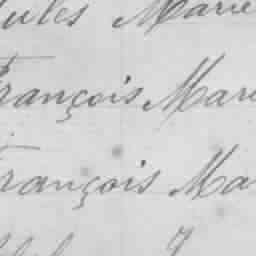 Jules Marie
François Marie
François Ma